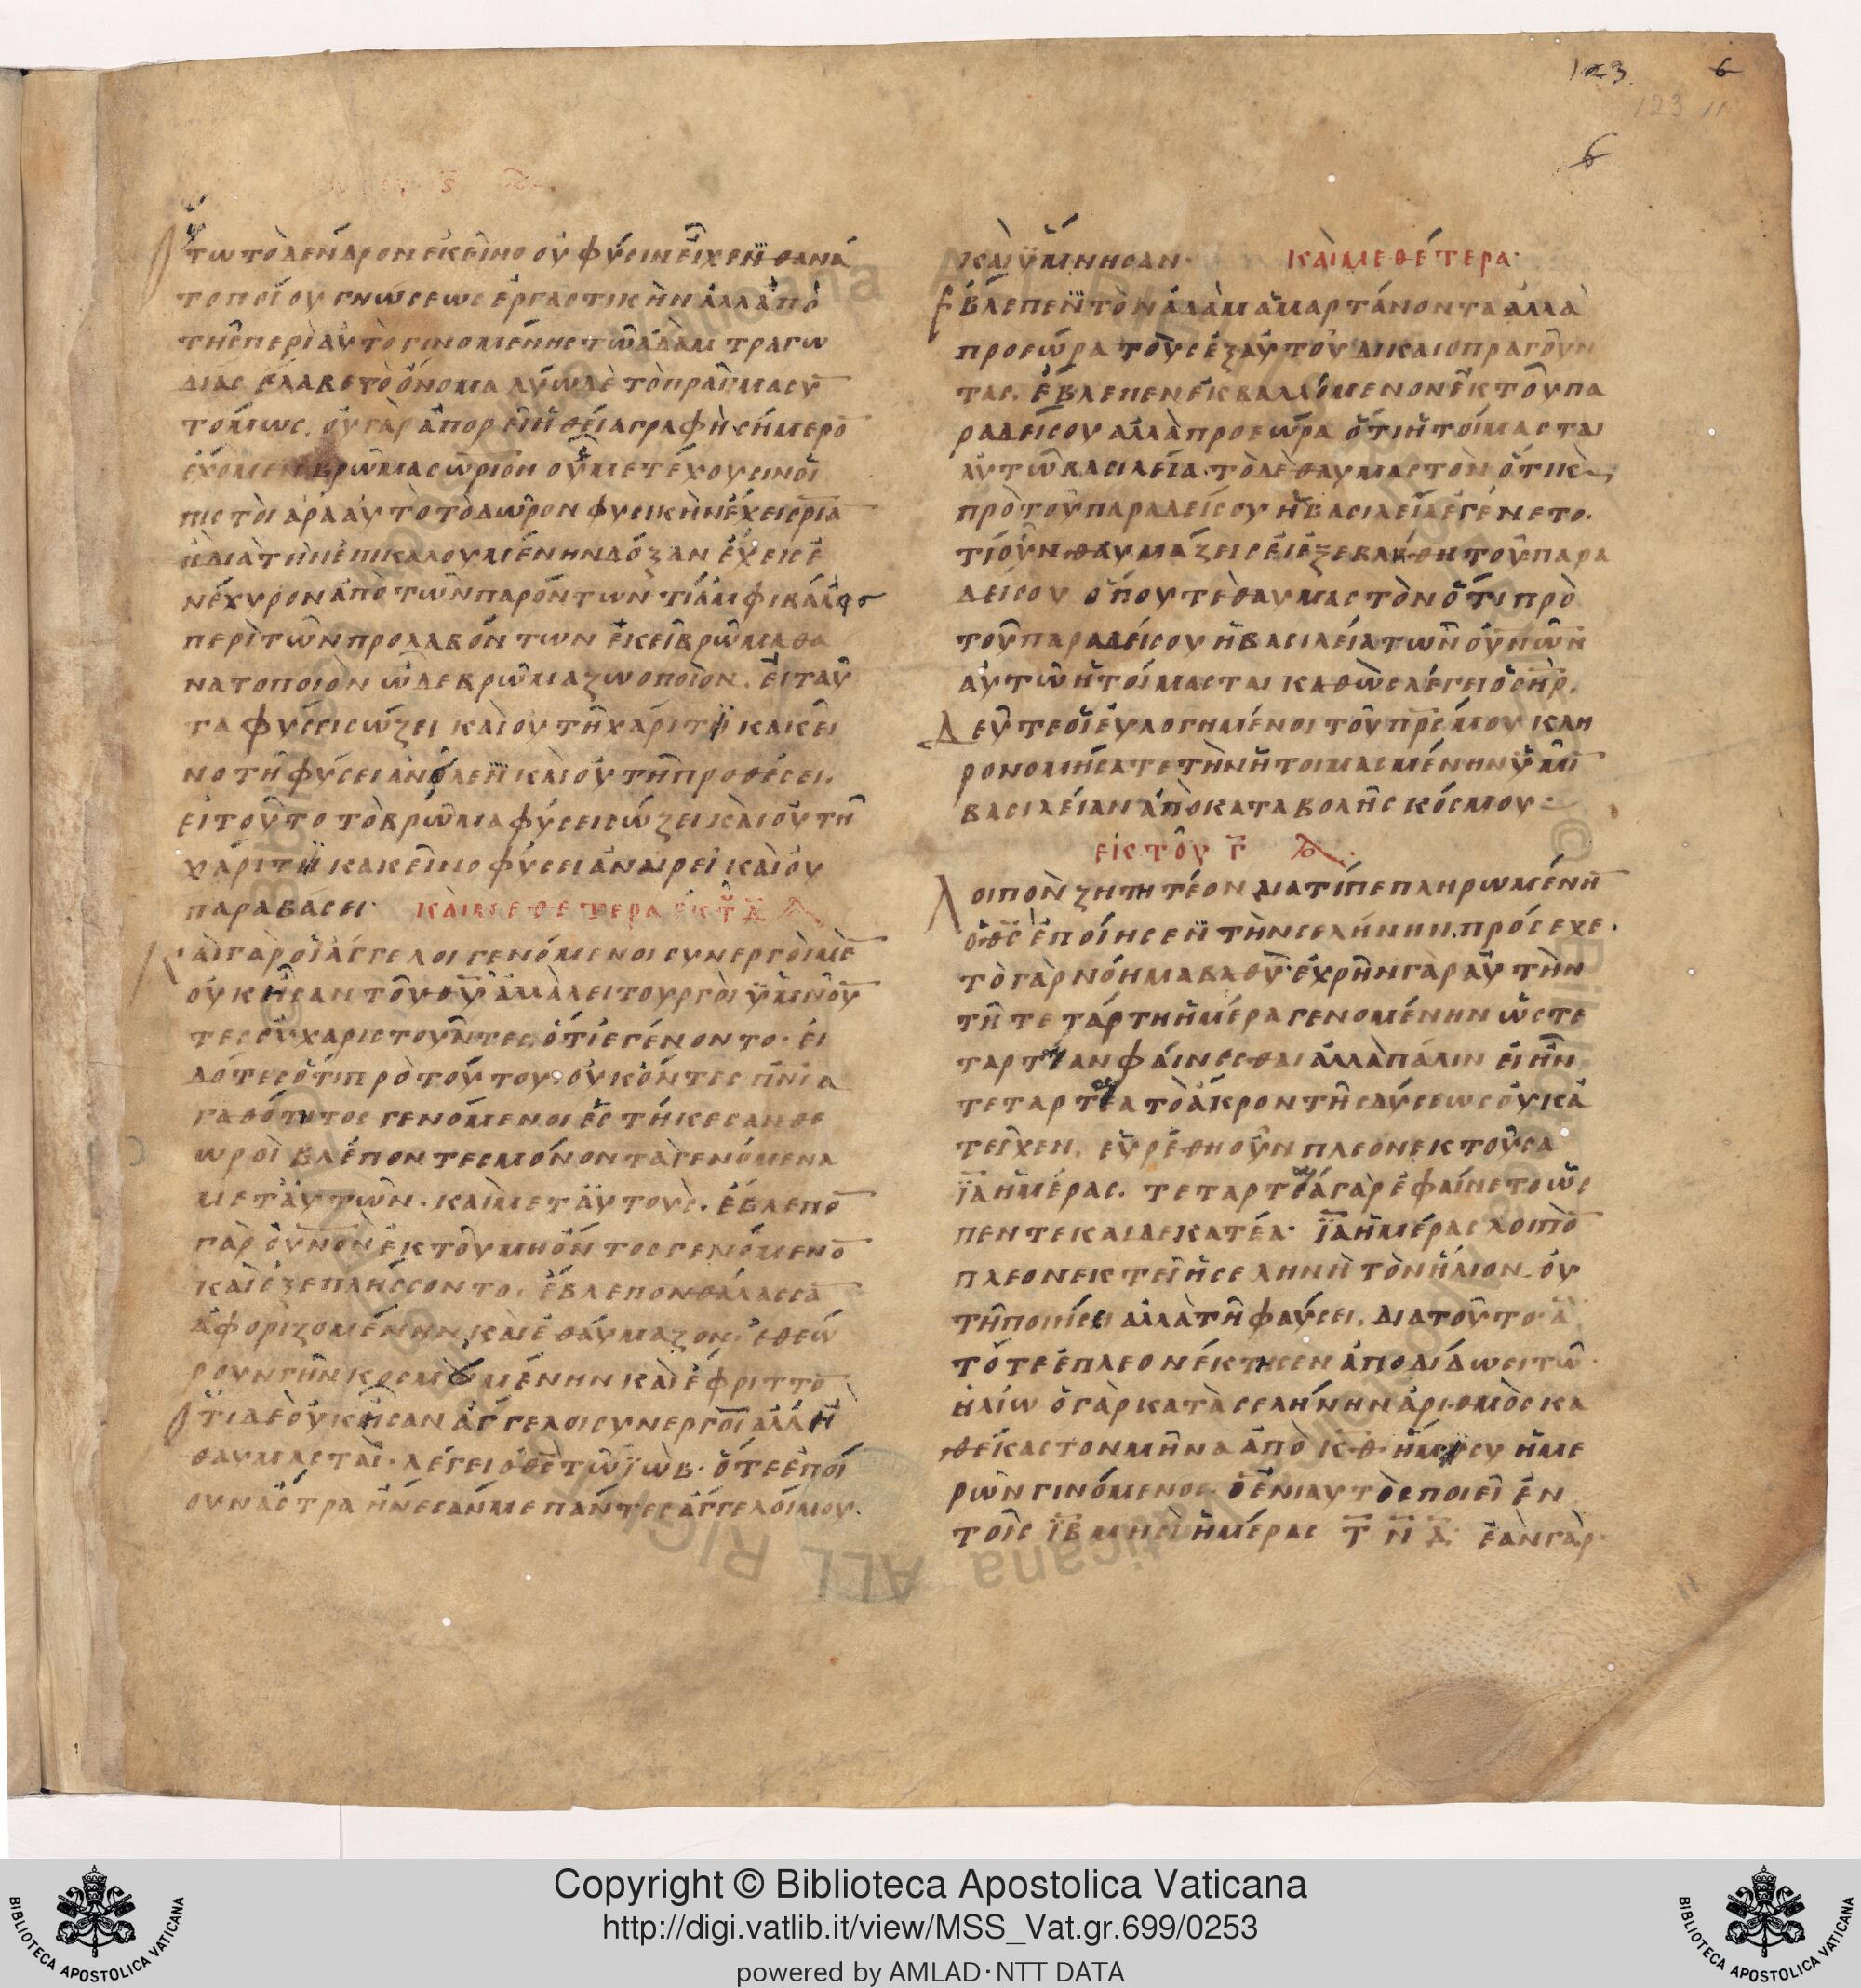 123 6
123 11
6
Οὕτω τὸ δένδρον ἐκεῖνο οὐ φύσιν εἶχεν ἢ θανά
τοποίου γνώσεως ἐργαστικὴν ἀλλ' ἀπὸ
τῆς περὶ αὐτὸ γινομένης τῶ ἀδὰμ τραγω
δίας ἔλαβε τὸ ὄνομα λύω δὲ τὸ πρᾶγμα συ̅
τόμως. οὐ γὰρ ἀπορεῖ ἡ θεία γραφὴ σήμερο̅
ἔχομεν βρῶμα σῶριον οὗ μετέχουσιν οἱ
πιστοὶ ἆρα αὐτὸ τὸ δῶρον φυσικὴν ἔχει σρια̅
ἢ διὰ τὴν ἐπικαλουμένην δόξαν ἔχεις ἐ
νέχυρον ἀπὸ τῶν παρόντων τί ἀμφιβάλλεις
περὶ τῶν προλαβόντων ἐκεῖ βρῶμα θα
νατοποιὸν ὧδε βρῶμα ζωοποῖον. εἰ ταῦ
τα φύσει σώζει καὶ οὐ τῆ χάριτι κακεῖ
νο τῆ φύσει ἀνεῖλεν καὶ οὐ τῆ προθέσει.
εἰ τοῦτο τὸ βρῶμα φύσει σώζει καὶ οὐ τῆ
χάριτι κακεῖνο φύσει ἀναιρεῖ καὶ οὐ
παραβάσει· ΚΑΙ ΜΕΘ ΕΤΕΡΑ ΕΚ Τ̅ Δ̅ ΛΟ
Καὶ γὰρ οἱ ἄγγελοι γενόμενοι συνεργοὶ μὲ̅
οὐκ ἦσαν τοῦ θυ̅ ἅμα λειτουργοὶ ὑμνοῦ̅
τες εὐχαριστοῦντες ὅτι ἐγένοντο· εἰ
δότες ὅτι πρὸ τούτου οὐκ ὄντες πν̅ι α
γαθότητος γενόμενοι ἑστήκεσαν θε
ωροὶ βλέποντες μόνον τὰ γενόμενα
μετ' αὐτῶν. καὶ μετ' αὐτοὺς. ἔβλεπο̅
γὰρ οὐνο̅ν ἐκ τοῦ μὴ ὄντος γενόμενο̅
καὶ ἐξεπλήσσοντο. ἔβλεπον θάλασσα̅
ἀφοριζομένην καὶ ἐθαύμαζον. ἐθεώ
ρουν γῆν κοσμουμένην καὶ ἔφριττο̅
Ὅτι δὲ οὐκ ἦσαν ἄγγελοι συνεργοὶ ἀλλ' ἢ
θαυμασταί. λέγει ὁ θς̅ τῶ ἰὼβ. ὅτε ἐποί
ουν ἄστρα ἤνεσάν με πάντες ἄγγελοί μου.
καὶ ὕμνησαν· ΚΑΙ ΜΕΘ ΕΤΕΡΑ·
Ἔβλεπεν τὸν ἀδὰμ ἁμαρτάνοντα ἀλλὰ
προεώρα τοὺς ἐξ αὐτοῦ δικαιοπραγοῦν
τας. ἔβλεπεν ἐκβαλλόμενον ἐκ τοῦ πα
ραδείσου ἀλλὰ προεώρα ὅτι ἡτοίμασται
αὐτῶ βασιλεία. τὸ δὲ θαυμαστὸν ὅτι κὲ
πρὸ τοῦ παραδείσου ἡ βασιλεία ἐγένετο.
τί οὖν θαυμάζεις εἰ ἐξεβλήθη τοῦ παρα
δείσου ὅπου τὲ θαυμαστὸν ὅτι πρὸ
τοῦ παραδείσου ἡ βασιλεία τῶν οὐνῶν
αὐτῶ ἡτοίμασται καθὼς λέγει ὁ σηρ̅.
Δεῦτε οἱ εὐλογημένοι τοῦ πρς̅ μου κλη
ρονομήσατε τὴν ἡτοιμασμένην ὑμῖ̅
βασιλείαν ἀπὸ καταβολῆς κόσμου
ΕΙΣ ΤΟΥ Γ̅ ΛΟ
Λοιπὸν ζητητέον διατί πεπληρωμένη̅
ὁ θς̅ ἐποίησεν τὴν σελήνην. πρόσεχε.
τὸ γὰρ νόημα βαθὺ· ἐχρῆν γὰρ αὐτὴν
τῆ τετάρτη ἡμέρα γενομένην ὥστε
ταρταίαν φαίνεσθαι ἀλλὰ πάλιν εἰ ἦν
τεταρταία τὸ ἄκρον τῆς δύσεως οὐ κα
τεῖχεν. εὑρέθη οὖν πλεονεκτοῦσα
ι̅α̅ ἡμέρας. τεταρταία γὰρ ἐφαίνετο ὡς
πεντεκαιδεκατέα· ι̅α̅ ἡμέρας λοιπὸ̅
πλεονεκτεῖ ἡ σελήνη τὸν ἥλιον. οὐ
τῆ ποιήσει ἀλλὰ τῆ φαύσει. διὰ τοῦτο ἃ
τότε ἐπλεονέκτησεν ἀποδίδωσι τῶ
ἡλίω ὁ γὰρ κατὰ σελήνην ἀριθμὸς κα
θ' ἕκαστον μῆνα ἀπὸ κ̅θ̅ ἥμισυ ἡμε
ρῶν γινόμενος ὁ ἐνιαυτὸς ποιεῖ ἐν
τοῖς ι̅β̅ μησὶ ἡμέρας τ̅ ν̅ δ̅. ἐὰν γὰρ
11
Copyright © Biblioteca Apostolica Vaticana
http://digi.vatlib.it/view/MSS_Vat.gr.699/0253
powered by AMLAD·NTT DATA
BIBLIOTECA APOSTOLICA VATICANA
BIBLIOTECA APOSTOLICA VATICANA